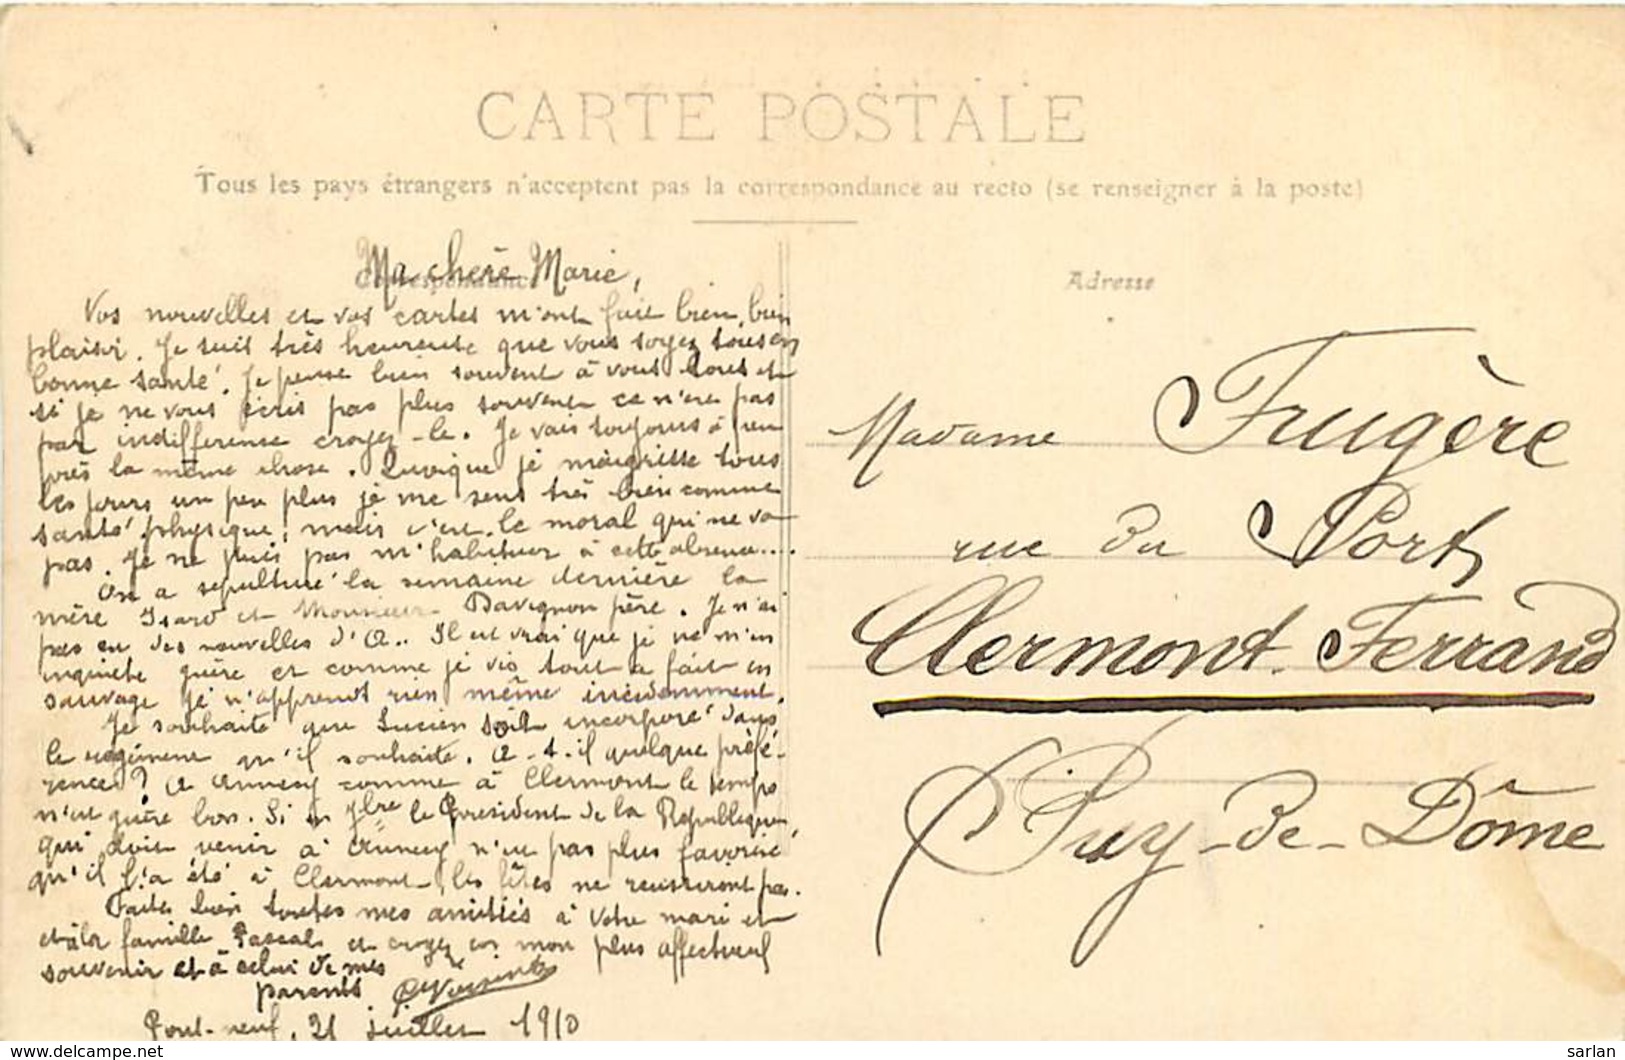 CARTE POSTALE
Tous les pays étrangers n'acceptent pas la correspondance au recto (se renseigner à la poste)
Correspondance
Ma chère Marie,
Vos nouvelles et vos cartes m'ont fait bien, bien
plaisir. Je suis très heureuse que vous soyez tous en
bonne santé. Je pense bien souvent à vous tous et
si je ne vous écris pas plus souvent ce n'est pas
par indifférence croyez-le. Je vais toujours à peu
près la même chose. Quoique je maigrisse tous
les jours un peu plus je me sens très bien comme
santé physique, mais c'est le moral qui ne va
pas. Je ne puis pas m'habituer à cette absence...
On a sépulturé la semaine dernière la
mère Isard et Monsieur Davignon père. Je n'ai
pas eu des nouvelles d'A.. Il est vrai que je ne m'en
inquiète guère et comme je vis tout à fait en
sauvage je n'apprends rien même incidemment.
Je souhaite que Lucien soit incorporé dans
le régiment qu'il souhaite. A-t-il quelque préfé-
rence? A Annecy comme à Clermont le temps
n'est guère bon. Si en 7bre le Président de la République,
qui doit venir à Annecy n'est pas plus favorisé
qu'il l'a été à Clermont, les fêtes ne réussiront pas.
Faites bien toutes mes amitiés à votre mari et
et à la famille Pascal et croyez en mon plus affectueux
souvenir et à celui de mes
parents
Pont-neuf, 21 juillet 1910
Adresse
Madame Frugère
rue du Port
Clermont-Ferrand
Puy-de-Dôme
https://www.delcampe.net
sarlan